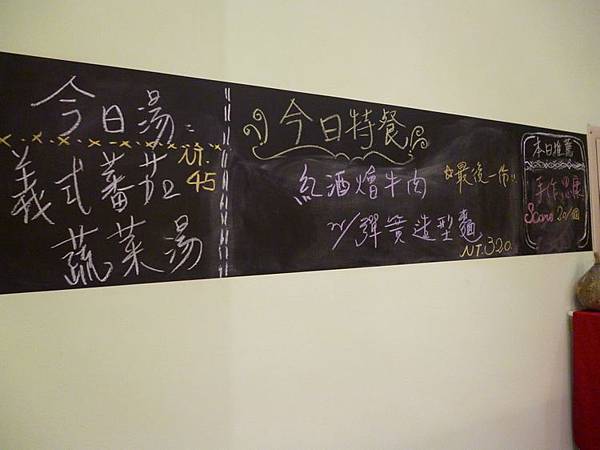 今日湯:
NT.
45
義式蕃茄
蔬菜湯
今日特餐
紅酒燴牛肉
☆最後一份!!
w/彈簧造型麵
NT.320
本日推薦
手作思康
Scone 20/個